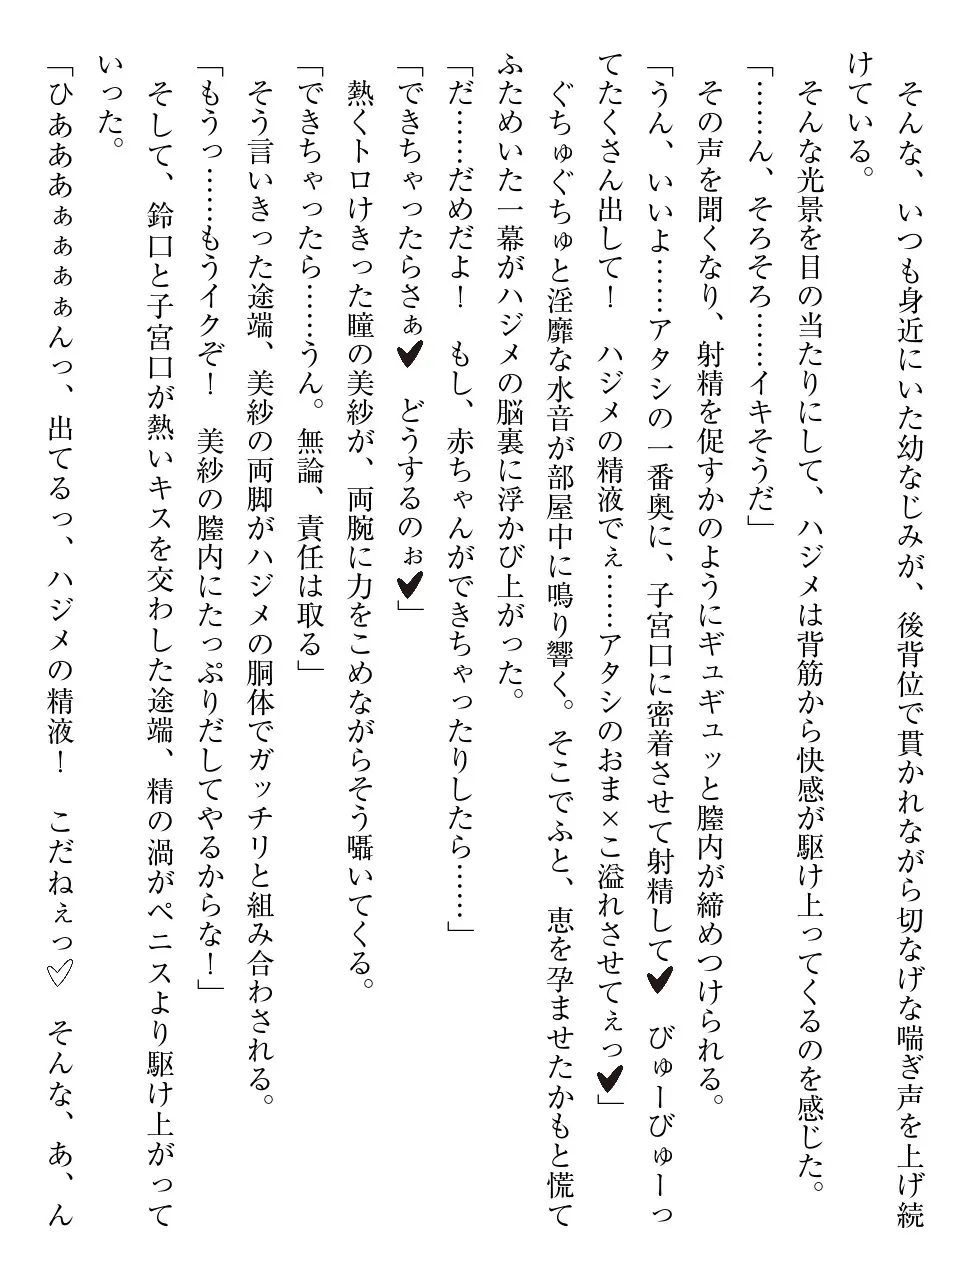 そんな、いつも身近にいた幼なじみが、後背位で貫かれながら切なげな喘ぎ声を上げ続
けている。
そんな光景を目の当たりにして、ハジメは背筋から快感が駆け上ってくるのを感じた。
「……ん、そろそろ……イキそうだ」
その声を聞くなり、射精を促すかのようにギュギュッと膣内が締めつけられる。
「うん、いいよ……アタシの一番奥に、子宮口に密着させて射精して♥　びゅーびゅーっ
てたくさん出して！　ハジメの精液でぇ……アタシのおま×こ溢れさせてぇっ♥」
ぐちゅぐちゅと淫靡な水音が部屋中に鳴り響く。そこでふと、恵を孕ませたかもと慌て
ふためいた一幕がハジメの脳裏に浮かび上がった。
「だ……だめだよ！　もし、赤ちゃんができちゃったりしたら……」
「できちゃったらさぁ♥　どうするのぉ♥」
熱くトロけきった瞳の美紗が、両腕に力をこめながらそう囁いてくる。
「できちゃったら……うん。無論、責任は取る」
そう言いきった途端、美紗の両脚がハジメの胴体でガッチリと組み合わされる。
「もうっ……もうイクぞ！　美紗の膣内にたっぷりだしてやるからな！」
そして、鈴口と子宮口が熱いキスを交わした途端、精の渦がペニスより駆け上がって
いった。
「ひあああぁぁぁぁんっ、出てるっ、ハジメの精液！　こだねぇっ♡　そんな、あ、ん